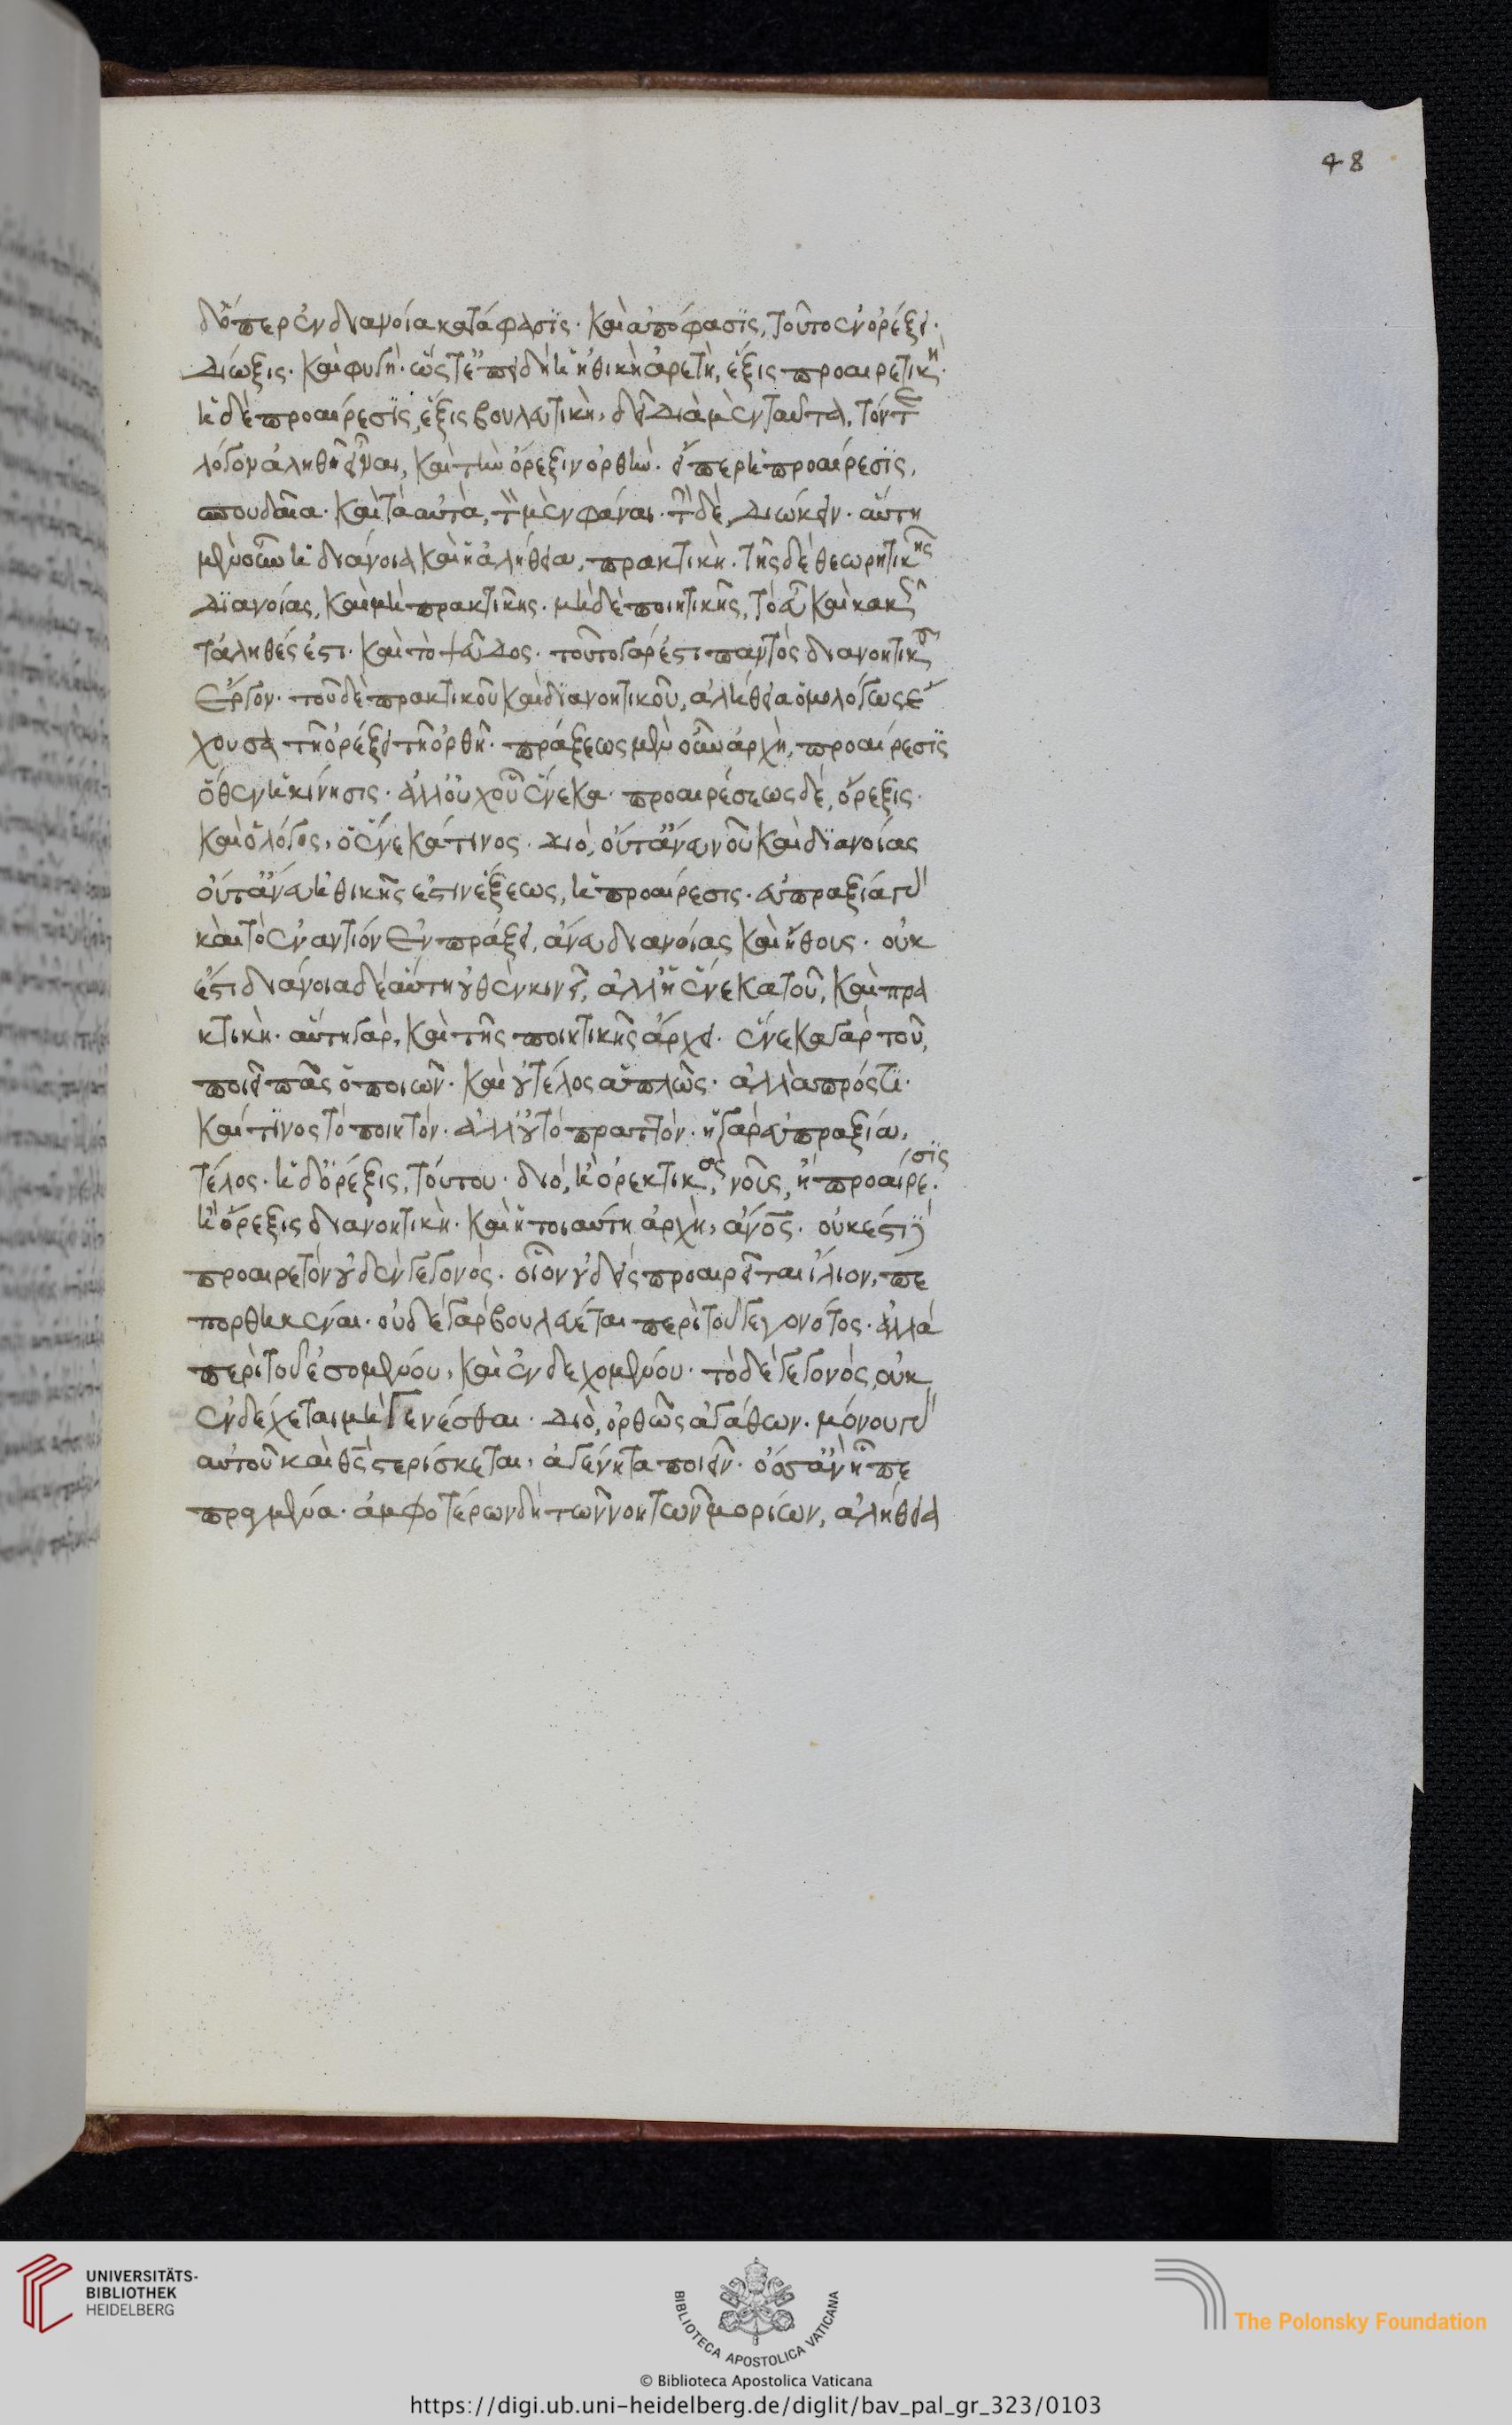 48
δ' ὅπερ ἐν διανοία κατάφασϊς · καὶ ἀπόφασϊς, τοῦτο ἐν ὀρέξει ·
δίωξις · καὶ φυγή · ὥς τ' ἐπειδὴ ἡ ἠθικὴ ἀρετὴ, ἕξις προαιρετικὴ ·
ἡ δὲ προαίρεσϊς, ἕξις βουλευτικὴ, δεῖ διὰ μὲν ταῦτα, τόν τε
λόγον ἀληθῆ εἶναι, καὶ τὴν ὄρεξιν ὀρθὴν · εἴπερ ἡ προαίρεσϊς,
σπουδαῖα · καὶ τὰ αὐτὰ, τὸν μὲν φάναι · τὴν δὲ, διώκειν · αὕτη
μὲν οὖν ἡ διάνοια καὶ ἡ ἀλήθεια, πρακτικὴ · τῆς δὲ θεωρητικῆς
δϊανοίας, καὶ μὴ πρακτικῆς · μὴ δὲ ποιητικῆς, τὸ εὖ καὶ κακῶς
τἀληθές ἐστι · καὶ τὸ ψεῦδος · τοῦτο γάρ ἐστι παντὸς διανοητικοῦ
ἔργον · τοῦ δὲ πρακτικοῦ καὶ δϊανοητικοῦ, ἀλήθεια ὁμολόγως ἔ
χουσα τῆ ὀρέξει τῆ ὀρθῆ · πράξεως μὲν οὖν ἀρχὴ, προαίρεσϊς
ὅθεν ἡ κίνησις · ἀλλ' οὐχ οὗ ἕνεκα · προαιρέσεως δὲ, ὄρεξις ·
καὶ ὁ λόγος, ὁ ἕνεκά τινος · διὸ, οὔτ' ἄνευ νοῦ καὶ δϊανοίας
οὔτ' ἄνευ ἠθικῆς ἐστιν ἕξεως, ἡ προαίρεσις · εὐπραξία γὰρ
καὶ τὸ ἐναντίον ἐν πράξει, ἄνευ διανοίας καὶ ἤθους · οὐκ
ἔστι διάνοια δὲ αὕτη οὐθὲν κινεῖ, ἀλλ' ἡ ἕνεκα τοῦ, καὶ πρα
κτικὴ · αὕτη γὰρ, καὶ τῆς ποιητικῆς ἄρχει · ἕνεκα γάρ του,
ποιεῖ πᾶς ὁ ποιῶν · καὶ οὐ τέλος ἁπλῶς · ἀλλὰ πρός τϊ ·
καὶ τϊνος τὸ ποιητόν · ἀλλ' οὐ τὸ πρακτόν · ἡ γὰρ εὐπραξία,
τέλος · ἡ δ' ὄρεξις, τούτου · διὸ, ἢ ὀρεκτικὸς νοῦς, ἡ προαίρεσϊς ·
ἢ ὄρεξις διανοητικὴ · καὶ ἡ τοιαύτη ἀρχὴ, ἄνος · οὐκ ἔστϊ δὲ
προαιρετὸν οὐδὲν γεγονός · οἷον οὐδεὶς προαιρεῖται ἴλιον, πε
πορθηκέναι · οὐδὲ γὰρ βουλεύεται περὶ τοῦ γεγονότος · ἀλλὰ
περὶ τοῦ ἐσομένου, καὶ ἐνδεχομένου · τὸ δὲ γεγονός, οὐκ
ἐνδέχεται μὴ γενέσθαι · διὸ, ὀρθῶς ἀγάθων · μόνου γὰρ
αὐτοῦ καὶ θς στερίσκεται, ἀγένητα ποιεῖν · ὅσ' ἂν ἦ πε
πραγμένα · ἀμφοτέρων δὴ τῶν νοητῶν μορίων, ἀλήθεια
UNIVERSITÄTS-
BIBLIOTHEK
HEIDELBERG
BIBLIOTECA APOSTOLICA VATICANA
The Polonsky Foundation
© Biblioteca Apostolica Vaticana
https://digi.ub.uni-heidelberg.de/diglit/bav_pal_gr_323/0103